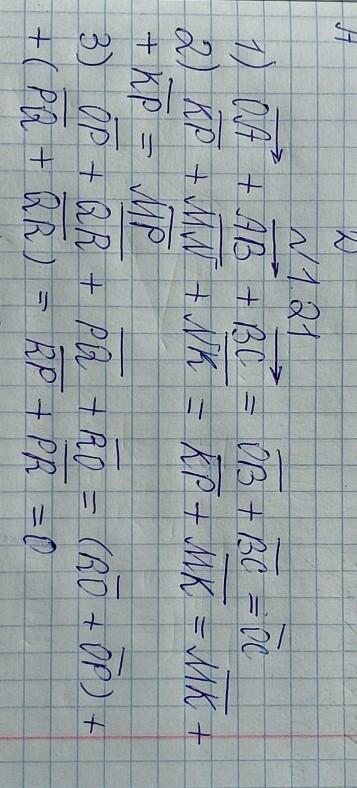 №1.21
1) \overrightarrow{OA} + \overrightarrow{AB} + \overrightarrow{BC} = \overline{OB} + \overline{BC} = \overline{OC}
2) \overline{KP} + \overline{MN} + \overline{NK} = \overline{KP} + \overline{MK} = \overline{MK} +
+ \overline{KP} = \overline{MP}
3) \overline{OP} + \overline{QR} + \overline{PQ} + \overline{RO} = (\overline{RO} + \overline{OP}) +
+ (\overline{PQ} + \overline{QR}) = \overline{RP} + \overline{PR} = 0